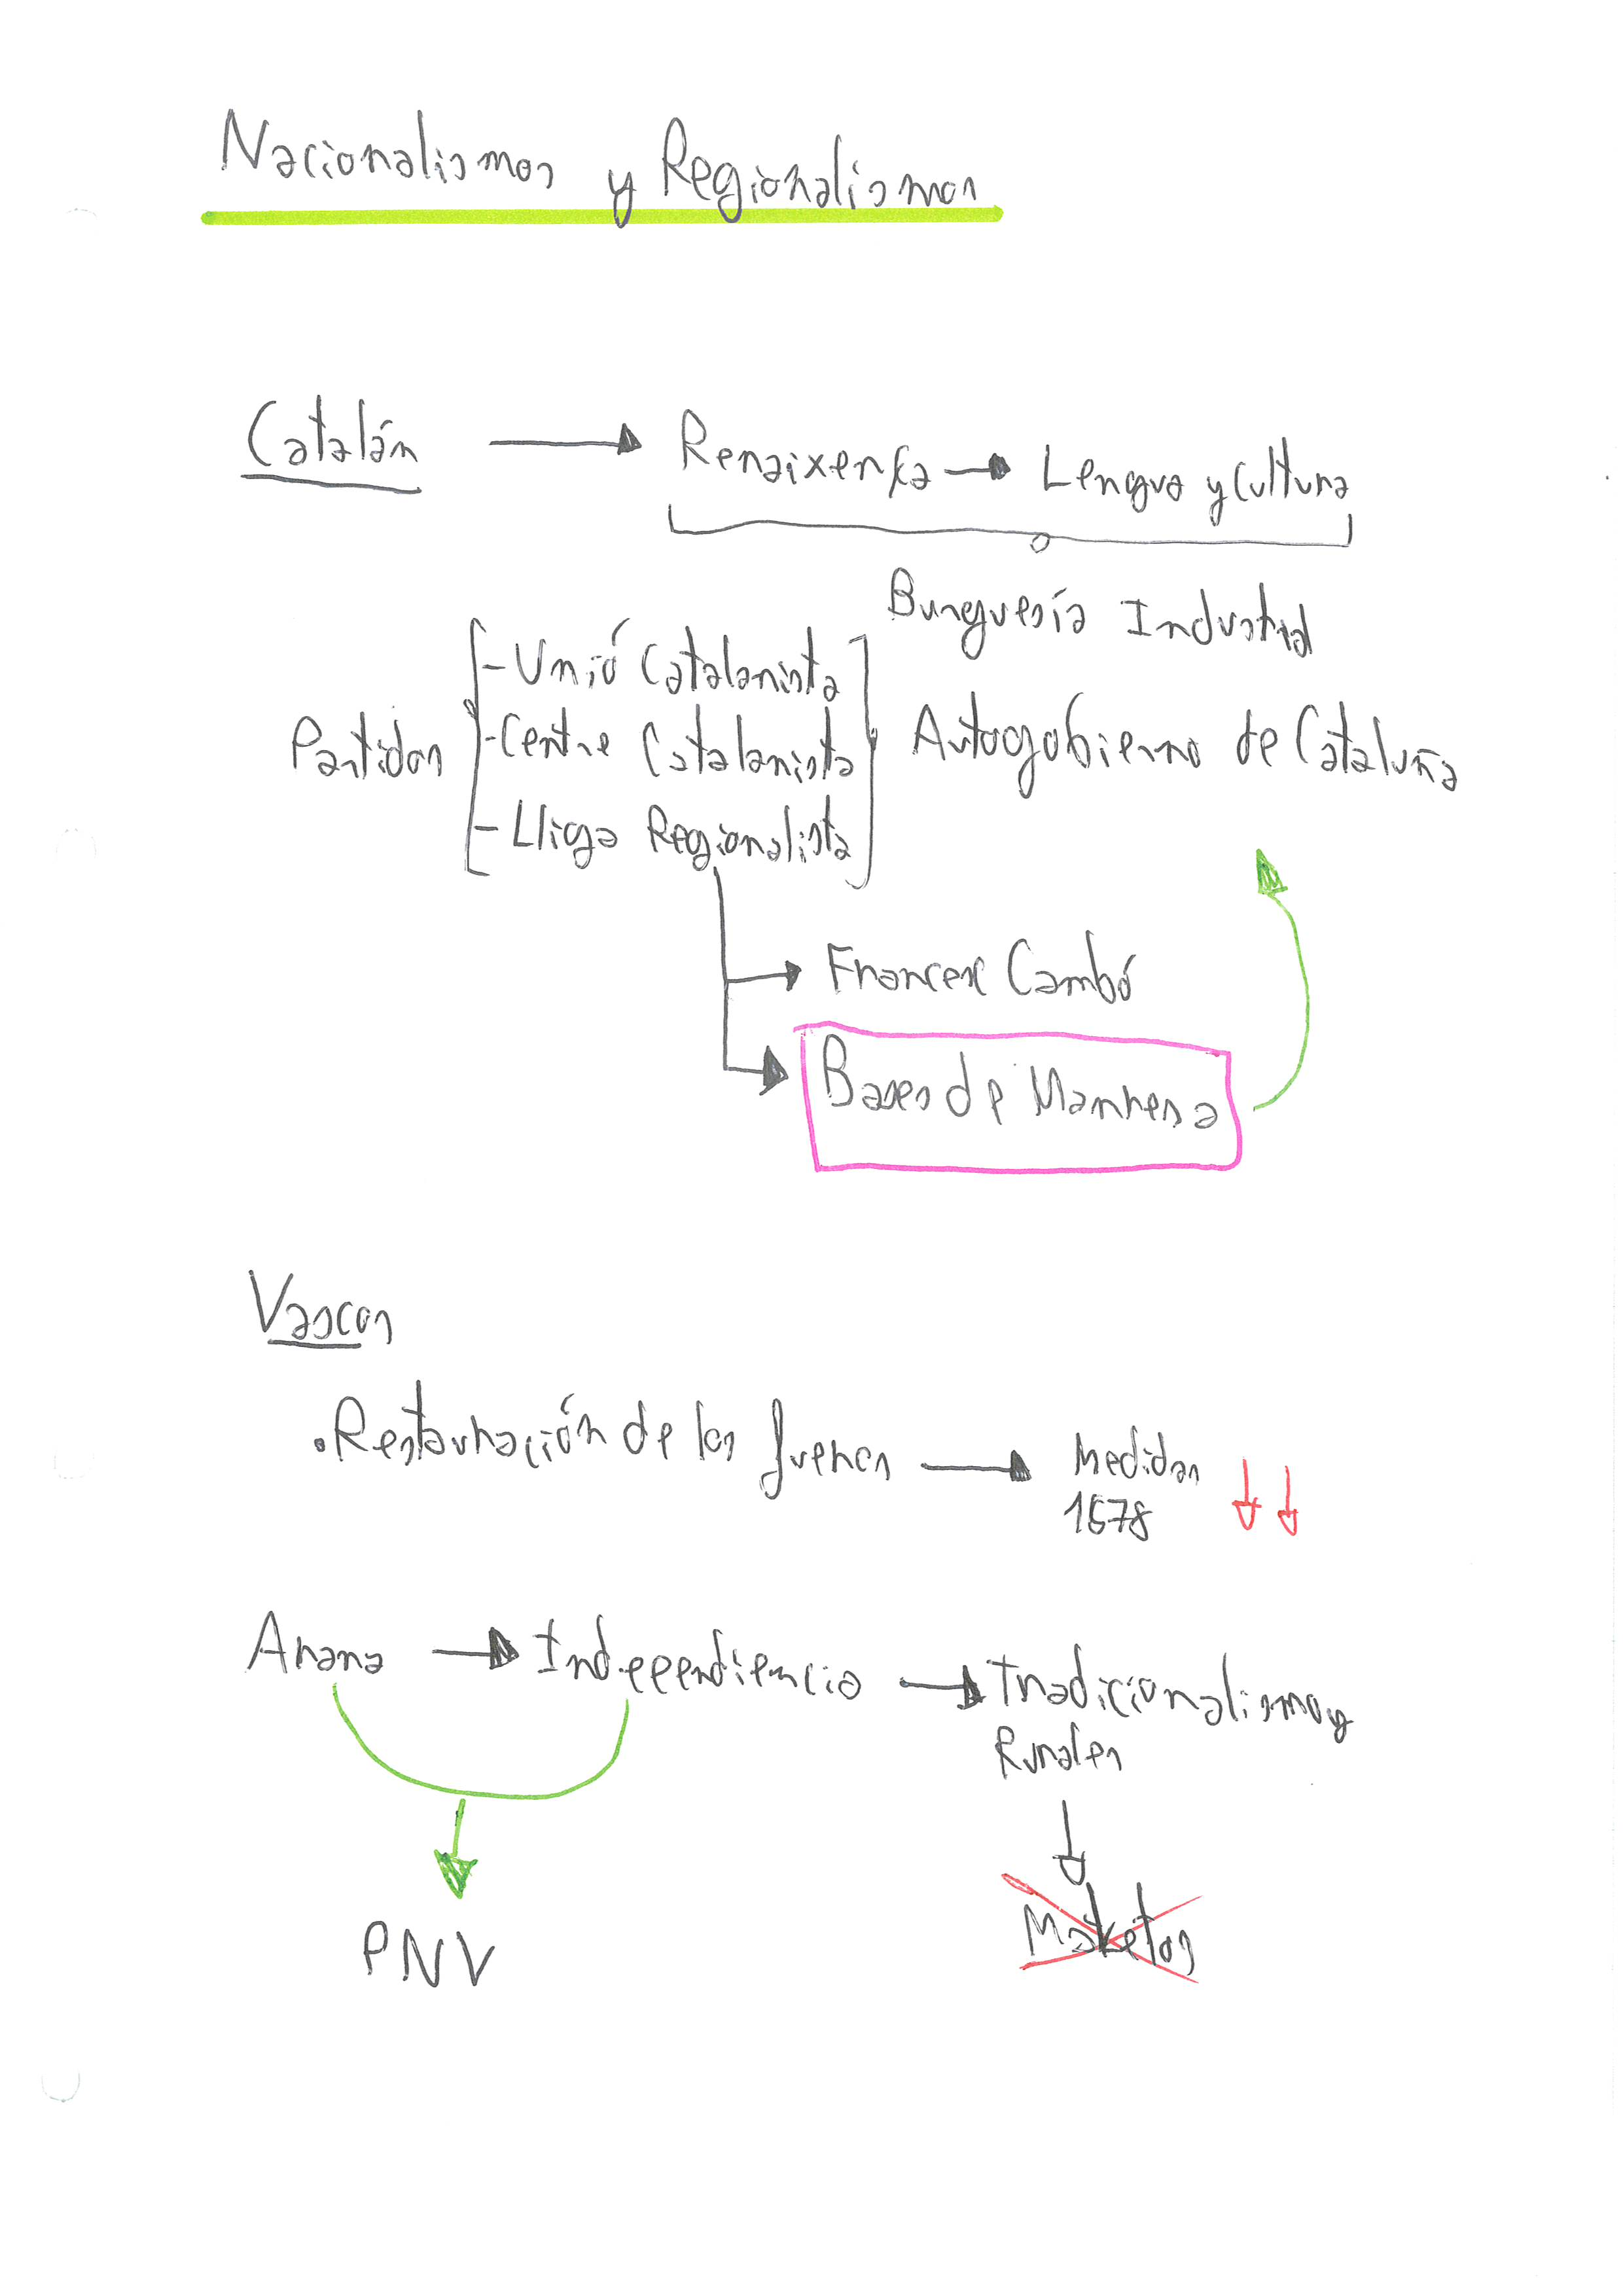 Nacionalismos y Regionalismos
Catalán → Renaixença → Lengua y Cultura
Burguesía Industrial
Partidos
- Unió Catalanista
- Centre Catalanista
- Lliga Regionalista
Autogobierno de Cataluña
Francesc Cambó
Bases de Manresa
Vascos
• Restauración de los fueros → Medidas
1678
Arana → Independiencia → Tradicionalismo y
Rurales
Maketos
PNV